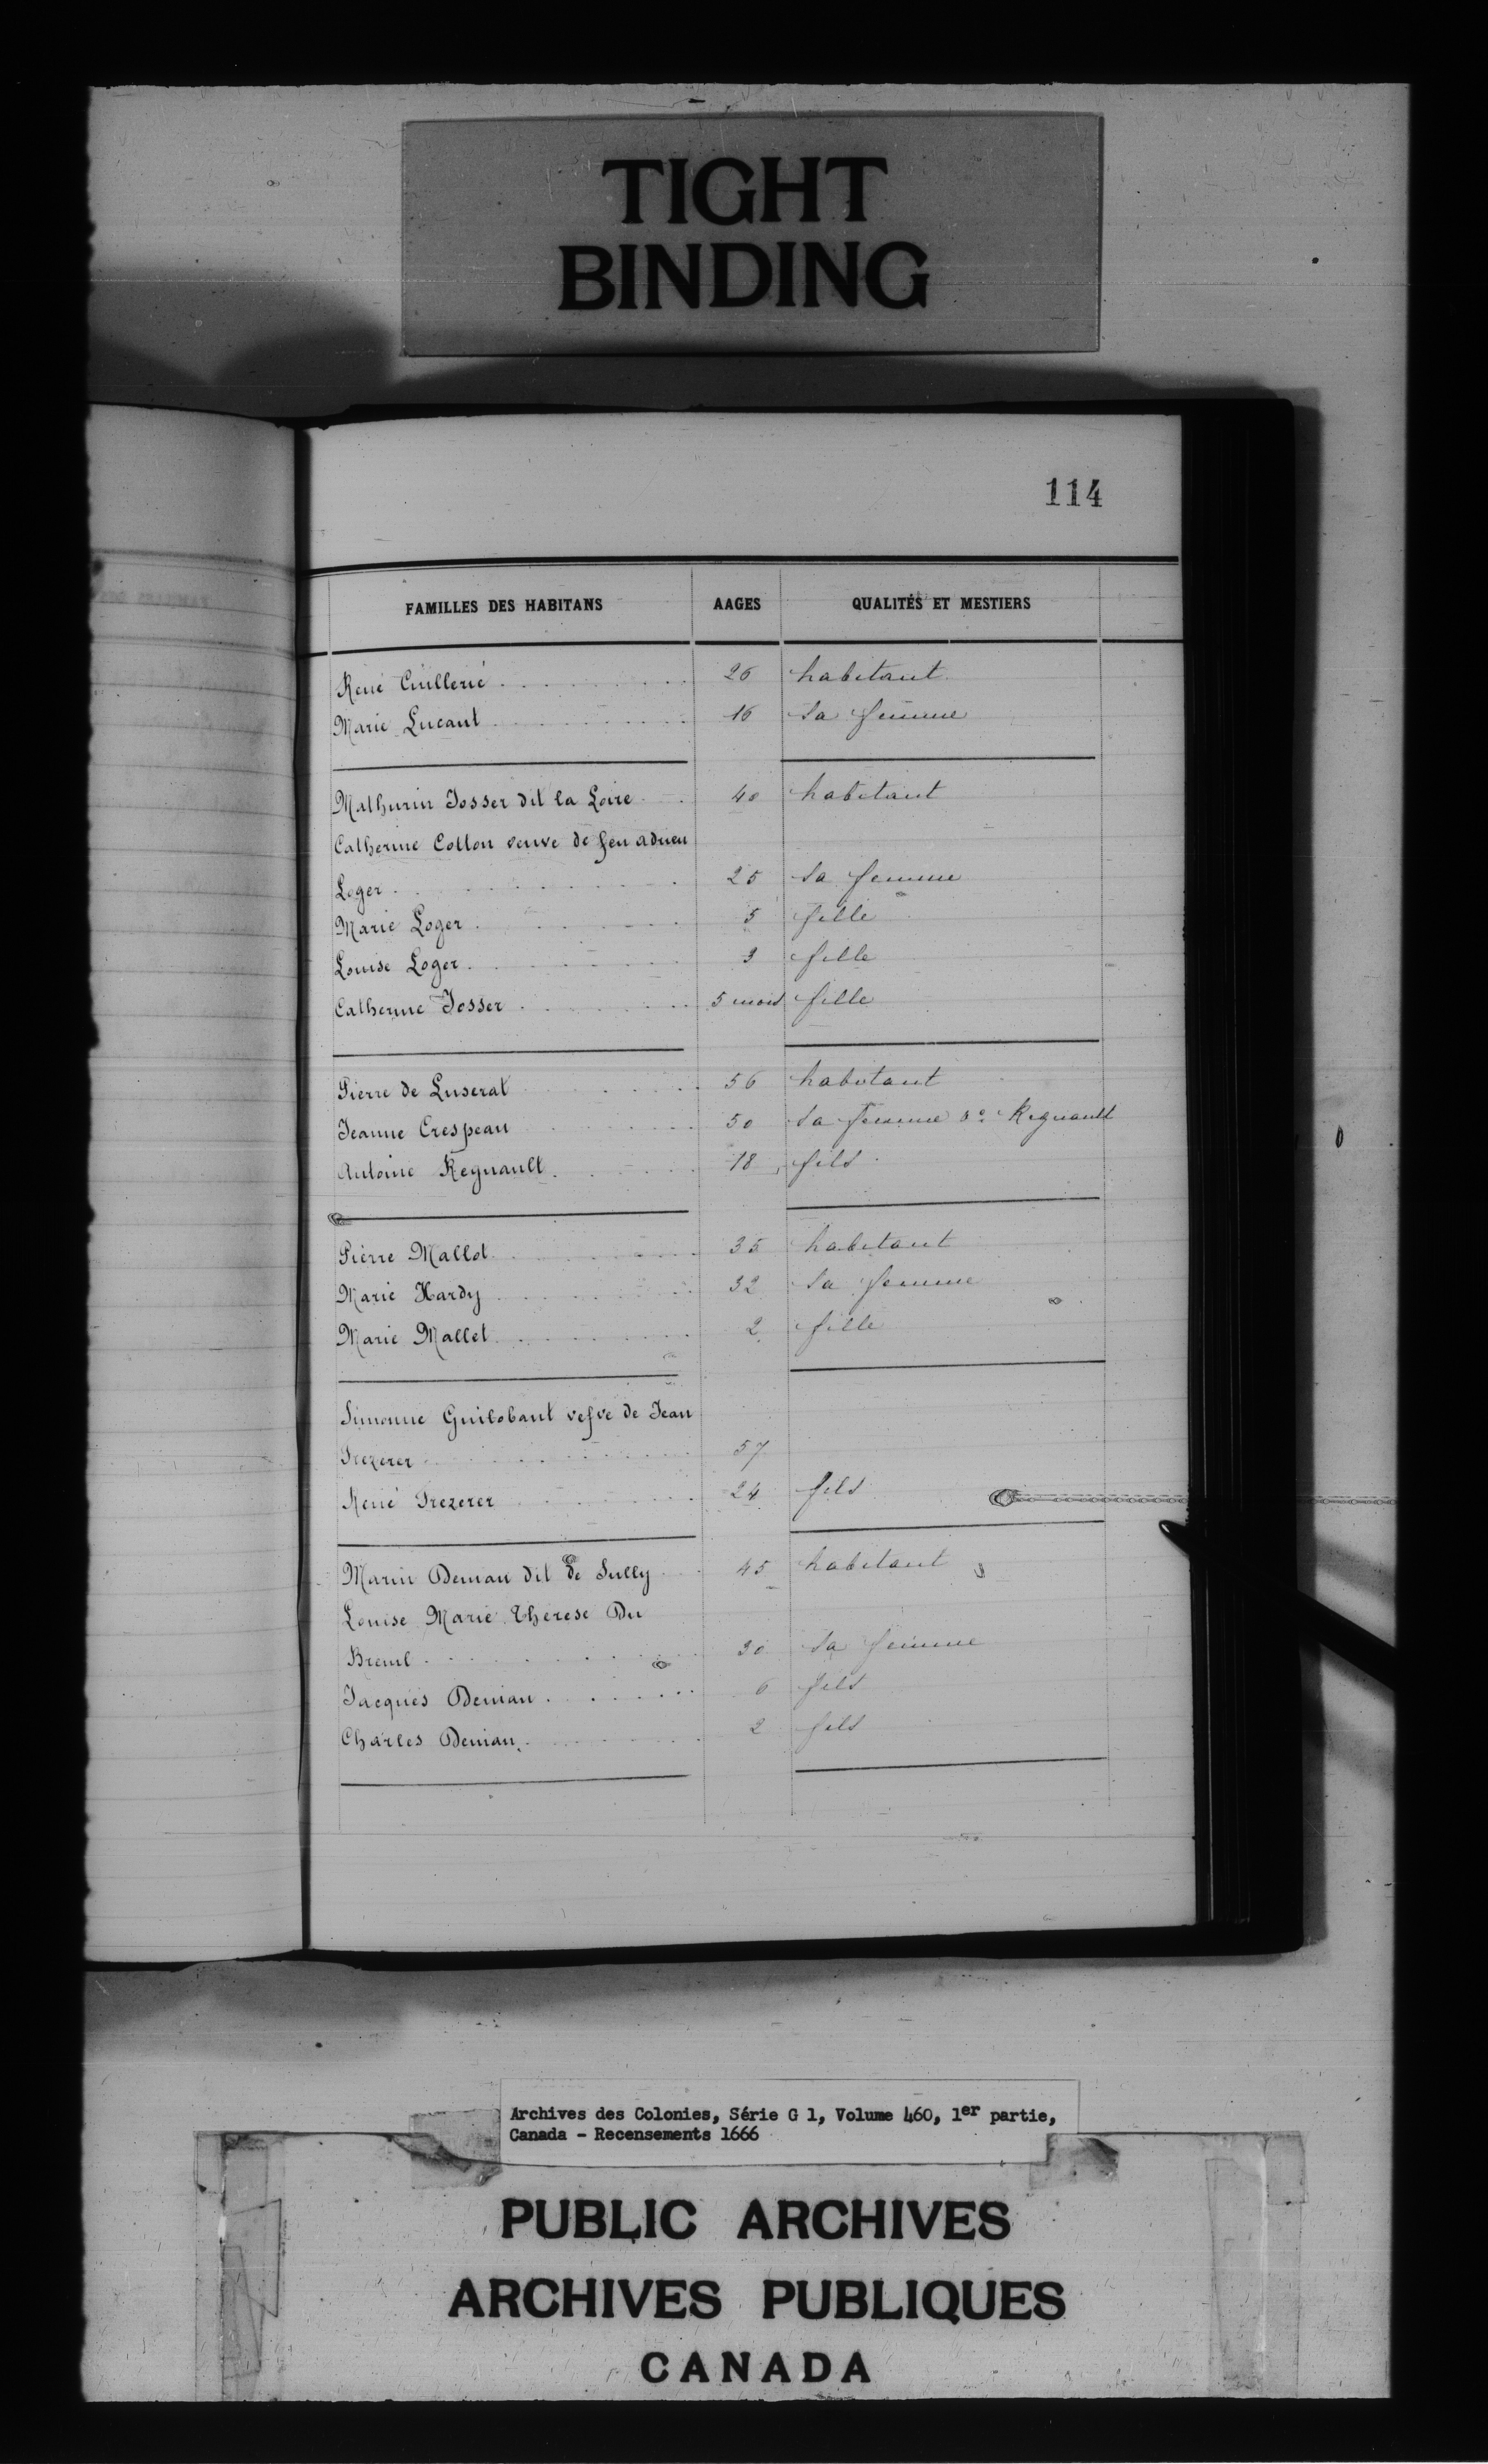 TIGHT
BINDING
114
FAMILLES DES HABITANS AAGES QUALITÉS ET MESTIERS
René Cüillerié 26 habitant
Marie Lucault 16 Sa femme
Mathurin Josser dit la Loire 40 habitant
Catherine Cotton veuve de feu adrien
Loger 25 Sa femme
Marie Loger 5 fille
Louise Loger 3 fille
Catherine Josser 5 mois fille
Pierre de Luserat 56 habitant
Jeanne Crespeau 50 Sa femme Ve Regnault
Antoine Regnault 18 fils
Pierre Mallot 35 habitant
Marie Hardy 32 Sa femme
Marie Mallet 2 fille
Simonne Guilobaut vefve de Jean
Trezerer 57
René Trezerer 24 fils
Marin Deniau dit De Sully 45 habitant
Louise Marie Therese Du
Breuil 30 Sa femme
Jacques Deniau 6 fils
Charles Deniau 2 fils
Archives des Colonies, Série G 1, Volume 460, 1er partie,
Canada - Recensements 1666
PUBLIC ARCHIVES
ARCHIVES PUBLIQUES
CANADA